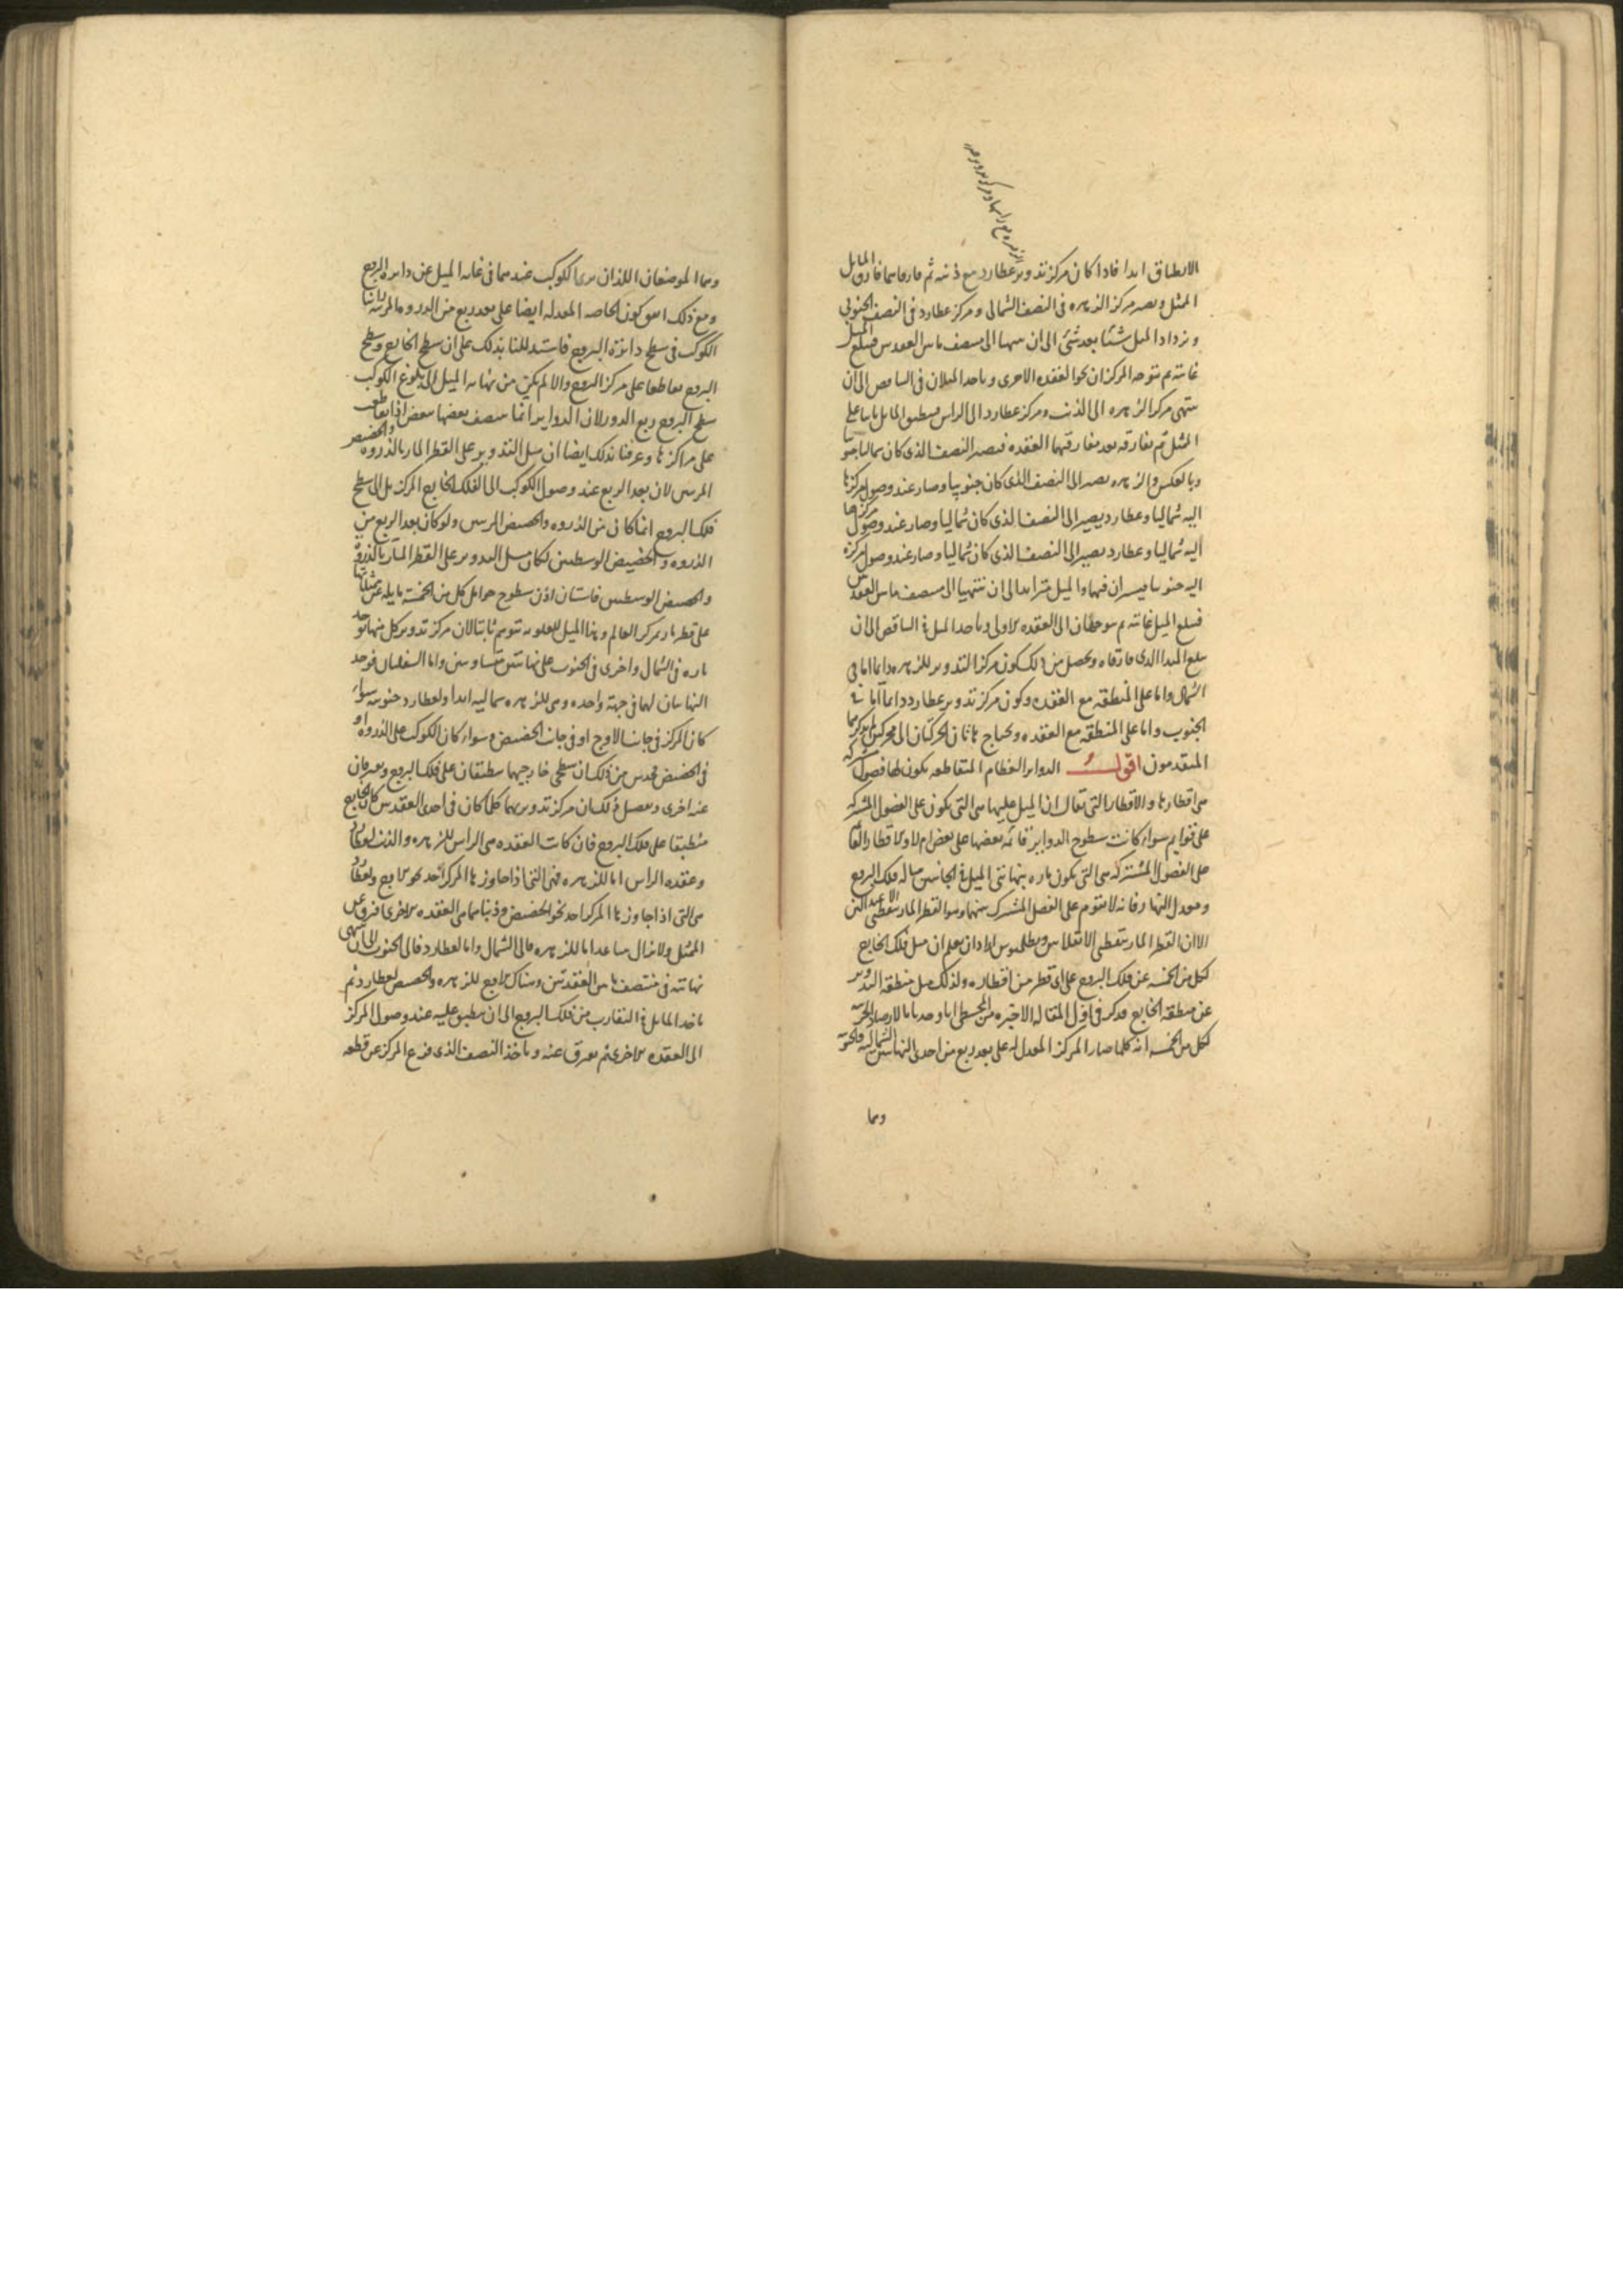 الانطباق ابدا فاذا كان مركز تدوير عطارد مع ذنبه ثم فارقاهما فارق المايل
الممثل ويصير مركز الزهره فى النصف الشمالى ومركز عطارد فى النصف الجنوبى
ويزداد الميل شيئا بعد شئ الى ان ينتهيا الى منتصف ما بين العقدتين فيبلغ الميل
غايته ثم يتوجه المركزان نحو العقده الاخرى وياخذ الميلان فى التناقص الى ان
ينتهى مركز الزهره الى الذنب ومركز عطارد الى الراس فينطبق المايل ثانيا على
الممثل ثم يفارقه بعد مفارقتهما العقده فيصير النصف الذى كان شماليا جنوبيا
وبالعكس والزهره يصير الى النصف الذى كان جنوبيا وصار عند وصول مركزها
اليه شماليا وعطارد يصير الى النصف الذى كان شماليا وصار عند وصول مركزها
اليه شماليا وعطارد يصير الى النصف الذى كان شماليا وصار عند وصول مركزه
اليه جنوبيا فيسيران فيهما والميل متزايد الى ان ينتهيا الى منتصف ما بين العقدتين
فيبلغ الميل غايته ثم يتوجهان الى العقده الاولى وياخذ الميل فى التناقص الى ان
يبلغ المبدا الذى فارقاه ويحصل من ذلك كون مركز التدوير للزهره دايما اما فى
الشمال واما على المنطقه مع العقده وكون مركز تدوير عطارد دايما اما فى
الجنوب واما على المنطقه مع العقده ويحتاج هاتان الحركتان الى محركين لم يذكرهما
المتقدمون اقول الدواير العظام المتقاطعه يكون لها فصول مشتركه
هى اقطارها والاقطار التى يقال ان الميل عليها هى التى يكون على الفصول المشتركه
على قوايم سواء كانت سطوح الدواير قائمه بعضها على بعض ام لا والاقطار القايمه
على الفصول المشتركه هى التى يكون ماره بنهايتى الميل فى الجانبين مثاله فلك البروج
ومعدل النهار فانه لا يتقوم على الفصل المشترك بينهما وهو القطر المار بنقطتى الاعتدالين
الا ان القطر المار بنقطتى الانقلابين وبطلميوس اراد ان يعلم ان ميل فلك الخارج
لكل من الخمسه عن فلك البروج على اى قطر من اقطاره ولذلك ميل منطقه التدوير
عن منطقه الخارج فذكر فى اول المقاله الاخيره من المجسطى انا وجدنا بالارصاد الجزئيه
لكل من الخمسه انه كلما صار المركز المعدل له على بعد ربع من احدى النهايتين الشماليه والجنوبيه
وهما
وهما الموضعان اللذان يرى الكوكب عندهما فى غايه الميل عن دايره البروج
ومع ذلك اتفق كون الخاصه المعدله ايضا على بعد ربع من الذروه المرئيه راينا
الكوكب فى سطح دائرة البروج فاستدللنا بذلك على ان سطح الخارج وسطح
البروج يتقاطعا على مركز البروج والا لم يكن من نهايه الميل الى بلوغ الكوكب
سطح البروج ربع الدور لان الدواير انما ينتصف بعضها ببعض اذا تقاطعت
على مراكزها وعرفنا بذلك ايضا ان ميل التدوير على القطر المار بالذروه والحضيض
المرئيين لان بعد الربع عند وصول الكوكب الى الفلك الخارج المركز بل الى سطح
فلك البروج انما كان من الذروه والحضيض المرئيين ولو كان بعد الربع من
الذروه والحضيض الوسطيين لكان ميل التدوير على القطر المار بالذروة
والحضيض الوسطيين فاستبان اذن سطوح حوامل كل من الخمسة مايله عن ممثلاتها
على قطر مار بمركز العالم وهذا الميل للعلويه يتوهم ثابتا لان مركز تدوير كل منها يوجد
تاره فى الشمال واخرى فى الجنوب على نهايتين متساويتين واما السفليان فيوجد
النهايتان لهما فى جهة واحده وهى للزهره شماليه ابدا ولعطارد جنوبيه سواء
كان المركز فى جانب الاوج او فى جانب الحضيض وسواء كان الكوكب على الذروه او
فى الحضيض فحدس من ذلك ان سطحى خارجيهما ينطبقان على فلك البروج ويفترقان
عنه اخرى وتفصيل ذلك ان مركز تدويريهما كلما كان فى احدى العقدتين كان الخارج
منطبقا على فلك البروج فان كانت العقده هى الراس للزهره والذنب لعطارد
وعقده الراس اما للزهره فهى التى اذا جاوزها المركز اخذ نحو الاوج ولعطارد
هى التى اذا جاوزها المركز اخذ نحو الحضيض وذنباهما هى العقده الاخرى افترق عن
الممثل ولا يزال متباعدا اما للزهره فالى الشمال واما لعطارد فالى الجنوب الى ان ينتهى
نهايته فى منتصف ما بين العقدتين وهناك الاوج للزهره والحضيض لعطارد ثم
ياخذ المايل فى التقارب من فلك البروج الى ان ينطبق عليه عند وصول المركز
الى العقده الاخرى ثم يفترق عنه وياخذ النصف الذى فرغ المركز عن قطعه